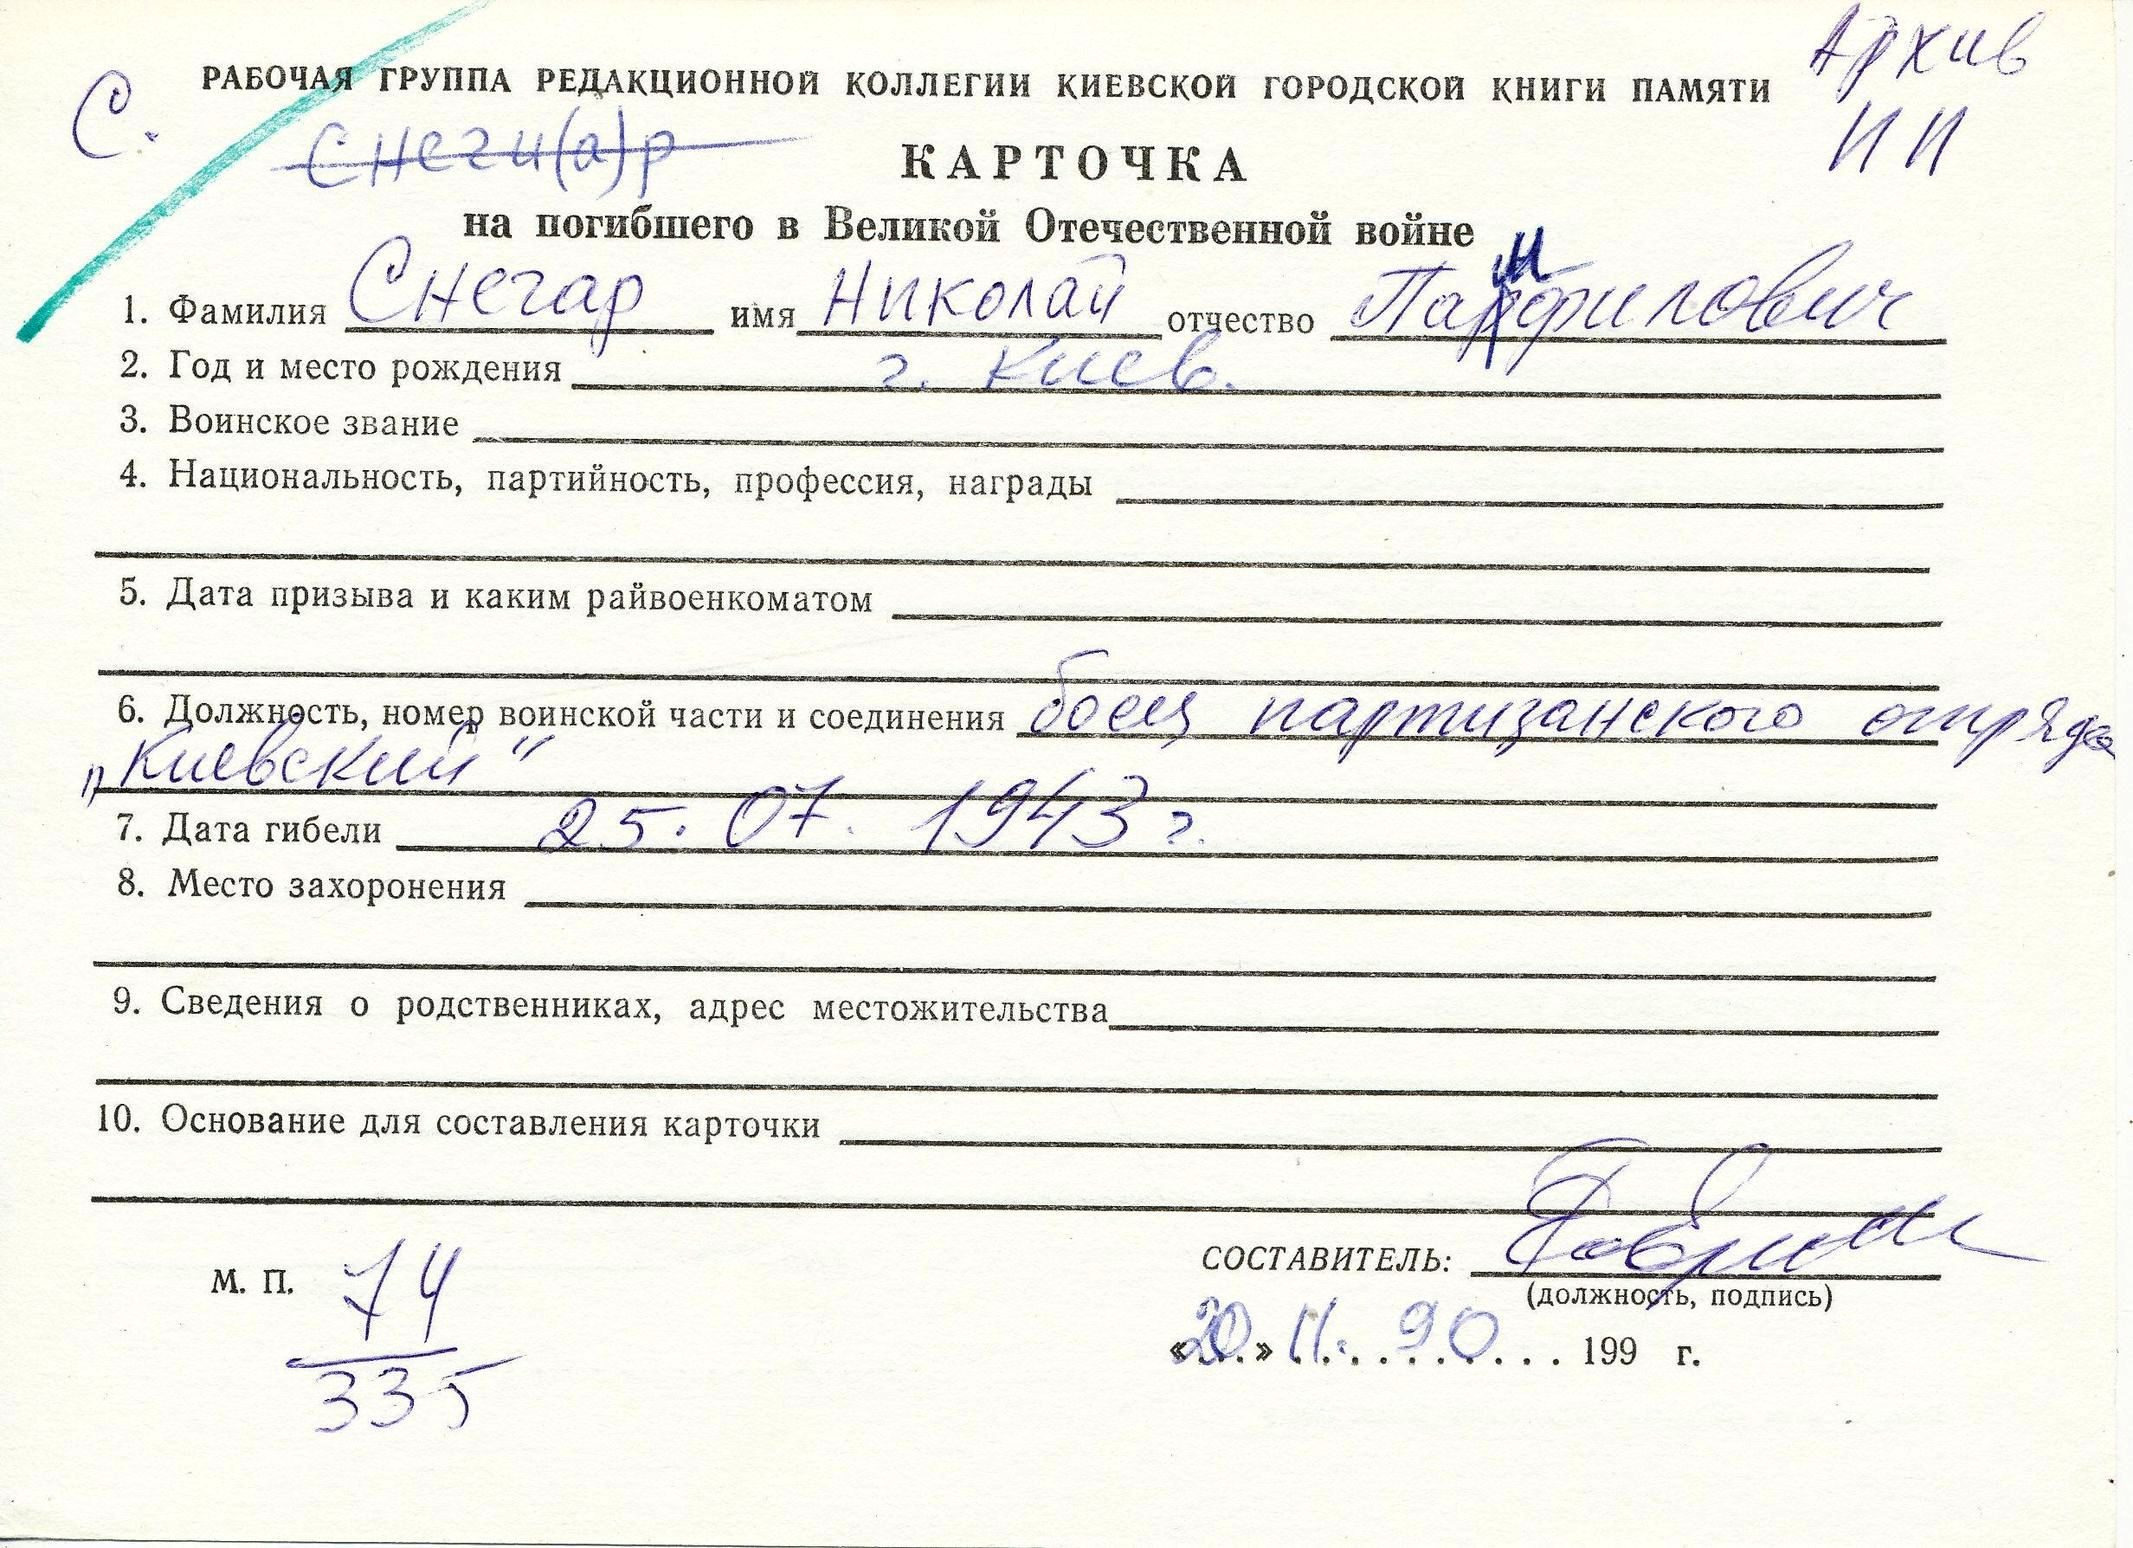 Архив
РАБОЧАЯ ГРУППА РЕДАКЦИОННОЙ КОЛЛЕГИИ КИЕВСКОЙ ГОРОДСКОЙ КНИГИ ПАМЯТИ
С.
Снеги(а)р
КАРТОЧКА
на погибшего в Великой Отечественной войне
1. Фамилия Снегар имя Николай отчество
2. Год и место рождения г. Киев.
3. Воинское звание
4. Национальность, партийность, профессия, награды
5. Дата призыва и каким райвоенкоматом
6. Должность, номер воинской части и соединения боец партизанского отряда
„Киевский"
7. Дата гибели 25. 07. 1943 г.
8. Место захоронения
9. Сведения о родственниках, адрес местожительства
10. Основание для составления карточки
СОСТАВИТЕЛЬ:
(должность, подпись)
М. П. 74
335
«20» 11. 90 199 г.